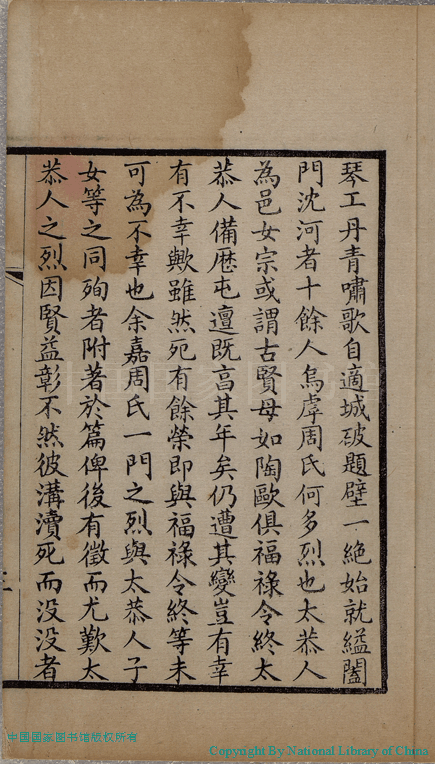 琴工丹青嘯歌自適城破題壁一絕始就縊闔
門沈河者十餘人烏虖周氏何多烈也太恭人
為邑女宗或謂古賢母如陶歐俱福祿令終太
恭人備歷屯邅既高其年矣仍遭其變豈有幸
有不幸歟雖然死有餘榮即與福祿令終等未
可為不幸也余嘉周氏一門之烈與太恭人子
女等之同殉者附著於篇俾後有徵而尤歎太
恭人之烈因賢益彰不然彼溝瀆死而没没者
中国国家图书馆版权所有
Copyright By National Library of China